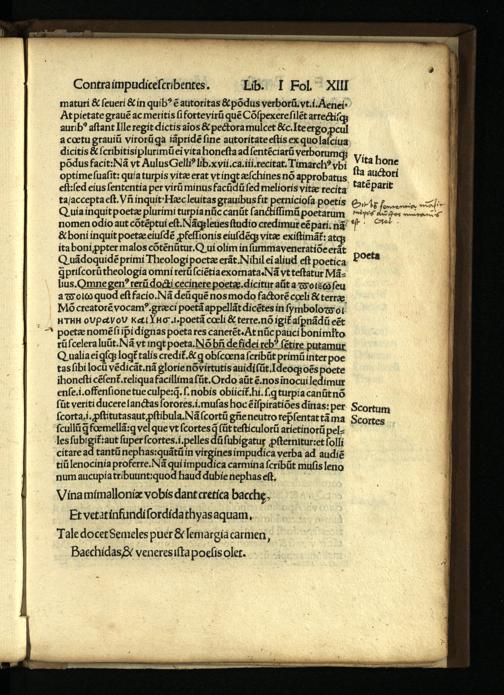 Contra impudice scribentes. Lib. I Fol. XIII
maturi & seueri & in quibꝰ ē autoritas & põdus verborũ. vt. i. Aenei.
At pietate grauē ac meritis si forte virũ quē Cõspexere silēt arrectisq;
auribꝰ astant Ille regit dictis aīos & pectora mulcet &c. Ite ergo, pcul
a cœtu grauiũ virorũ qa iãpridē sine autoritate estis ex quo lasciuia
dicitis & scribitis: plurimũ eī vita honesta ad sentēciarũ verborumq;
põdus facit: Nã vt Aulus Gelliꝰ lib. xvii. ca. iii. recitat. Timarchꝰ vbi
optime suasit: quia turpis vitæ erat vt inqt æschines nõ approbatus
est: sed eius sententia per virũ minus facũdũ sed melioris vitæ recita
ta / accepta est. Vñ inquit. Hæc leuitas grauibus fit perniciosa poetis
Quia inquit poetæ plurimi turpia nũc canũt sanctissimũ poetarum
nomen odio aut cõtēptui est. Nãq; leues studio credimur eē pari. nã
& boni inquit poetæ eiusdē, pfessionis eiusdēq; vitæ existimãt: atq;
ita boni, ppter malos cõtēnũtur. Qui olim in summa veneratiõe erãt
Quãdoquidē primi Theologi poetæ erãt. Nihil eī aliud est poetica
q̃ priscorũ theologia omni rerũ sciētia exornata. Nã vt testatur Mã-
lius. Omne genꝰ rerũ docti cecinere poetæ. dicitur aũt a ποιέω seu
a ποιῶ quod est facio. Nã deũ quē nos modo factorē cœli & terræ
Mõ creatorē vocamꝰ. græci poetã appellãt dicētes in symbolo ποι
ητην ουρανου και γης. i. poetã cœli & terræ. nõ igīt aspnãdũ eēt
poetæ nomē si ipi digna poeta res canerēt. At nũc pauci boni mīto
rũ scelera luũt. Nã vt inqt poeta. Nõ bñ de fidei rebꝰ sētire putamur
Qualia eī qsq; loqt̃ talis credit̃. & q obscœna scribũt primũ inter poe
tas sibi locũ vēdicãt. nã glorie nõ virtutis auidi sũt. Ideoq; oēs poete
ihonesti cēsent̃. reliqua facillima sũt. Ordo aũt ē. nos inocui ledimur
ense. i. offensione tue culpe: q. s. nobis obiicit̃. hi. s. q turpia canũt nõ
sũt veriti ducere sanctas lorores. i. musas hoc ē īspiratiões diuinas: per
scorta, i., pstitutas aut, pstibula. Nã scortũ gñe neutro repr̃sentat tã ma
sculũ q̃ fœmellã: q vel que vt scortes q sũt testiculorũ arietinorũ pel-
les subigit̃: aut super scortes. i. pelles dũ subigatur, psternitur: et solli
citare ad tantũ nephas: quãtũ in virgines impudica verba ad audiē
tiũ lenocinia proferre. Nã qui impudica carmina scribũt musis leno
num aucupia tribuunt: quod haud dubie nephas est.
Vina mimalloniæ vobis dant cretica bacchę,
Et vetat infundi sordida thyas aquam,
Tale docet Semeles puer & lemargia carmen,
Bacchidas, & veneres ista poesis olet.
Vita hone
sta auctori
tatē parit
poeta
Scortum
Scortes